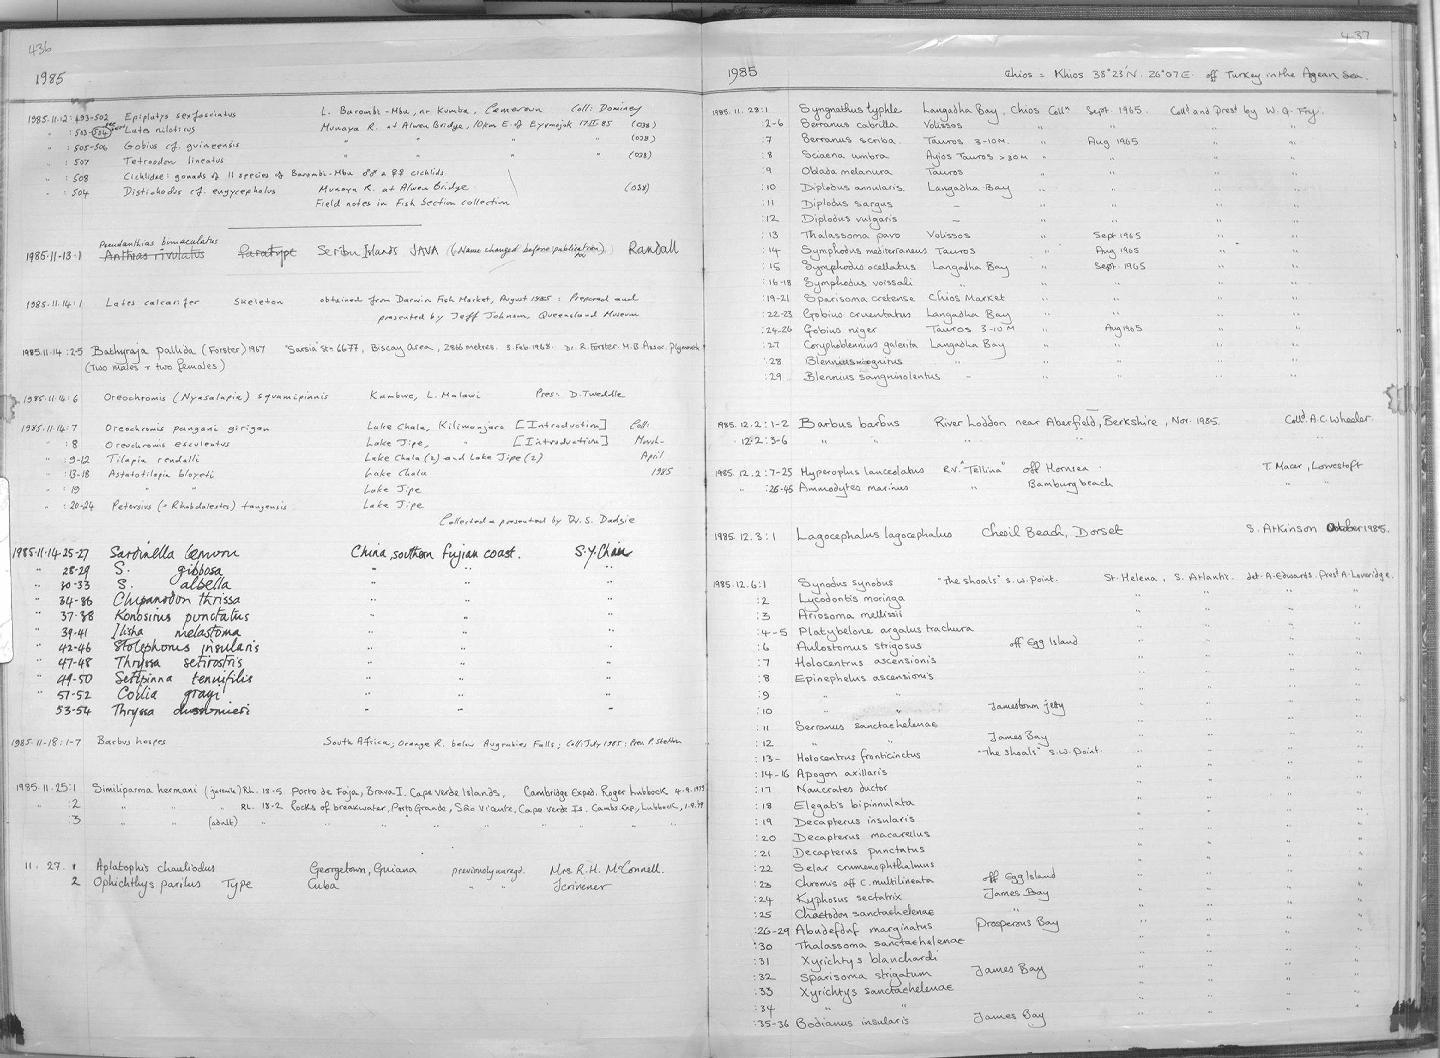 436
1985
1985.11.12: 493-502 Epiplatys sexfasciatus L. Barombi-Mba, nr Kumba, Cameroun Coll: Dominey
" :503- Lates niloticus Munaya R. at Alwen Bridge, 10km E. of Eyomojok 17 II 85 (038)
" :505-506 Gobius cf. guineensis " " " " (038)
" :507 Tetraodon lineatus (038)
" :508 Cichlidae: gonads of 11 species of Barombi-Mba ♂♂ & ♀♀ cichlids
" :504 Distichodus cf. engycephalus Munaya R. at Alwen Bridge (038)
Field notes in Fish Section collection
Pseudanthias bimaculatus
1985.11.13:1 Anthias rivulatus Paratype Seribu Islands JAVA (Name changed before publication) Randall
1985.11.14:1 Lates calcarifer Skeleton obtained from Darwin Fish Market, August 1985: Prepared and
presented by Jeff Johnson, Queensland Museum
1985.11.14:2-5 Bathyraja pallida (Forster) 1967 "Sarsia" Stn 6677, Biscay Area, 2866 metres. 3.Feb.1968. Dr. R. Forster. M.B. Assoc. Plymouth
(two males + two females)
1985.11.14:6 Oreochromis (Nyasalapia) squamipinnis Kambwe, L. Malawi Pres: D. Tweddle
1985.11.14:7 Oreochromis pangani girigan Lake Chala, Kilimanjaro [Introduction] Coll:
" :8 Oreochromis esculentus Lake Jipe, " [Introduction] March-
" :9-12 Tilapia rendalli Lake Chala (2) and Lake Jipe (2) April
" :13-18 Astatotilapia bloyeti Lake Chala 1985
" :19 " Lake Jipe
" :20-24 Petersius (=Rhabdalestes) tangensis Lake Jipe
Collected & presented by Dr. S. Dadzie
1985.11.14.25-27 Sardinella lemuru China, southern Fujian coast. S.Y. Chan
" 28-29 S. gibbosa " " "
" 30-33 S. albella " " "
" 34-36 Clupanodon thrissa " " "
" 37-38 Konosirus punctatus " " "
" 39-41 Ilisha melastoma " " "
" 42-46 Stolephorus insularis " " "
" 47-48 Thryssa setirostris " " "
" 49-50 Setipinna tenuifilis " " "
" 51-52 Coilia grayi " " "
53-54 Thryssa dussumieri " " "
1985.11.18:1-7 Barbus hospes South Africa; Orange R. below Augrabies Falls; Coll: July 1985: Pres. P. Skelton
1985.11.25:1 Similiparma hermani (juvenile) RL. 18-5 Porto de Faja, Brava I. Cape Verde Islands, Cambridge Exped. Roger Lubbock 4.9.1979
" :2 " " RL. 13-2 Rocks of breakwater, Porto Grande, São Vicente, Cape Verde Is. Camb. Exp., Lubbock, 1.8.79
" :3 " " (adult) " " " " " " "
11. 27. 1 Aplatophis chauliodus Georgetown, Guiana previously unregd. Mrs R.H. McConnell.
2 Ophichthys parilus Type Cuba " " Scrivener
437
1985 Chios = Khios 38°23'N. 26°07'E. off Turkey in the Agean Sea.
1985.11.28:1 Syngnathus typhle Langadha Bay, Chios Collⁿ Sept. 1965 Colld and Prestd by W.G. Fry.
:2-6 Serranus cabrilla Volissos " " " "
:7 Serranus scriba Tauros 3-10M. " Aug 1965 " "
:8 Sciaena umbra Ayios Tauros >30M " " " "
:9 Oblada melanura Tauros " " " "
:10 Diplodus annularis. Langadha Bay " " " "
:11 Diplodus sargus — " " " "
:12 Diplodus vulgaris — " " " "
:13 Thalassoma pavo Volissos " Sept 1965 " "
:14 Symphodus mediterraneus Tauros " Aug 1965 " "
:15 Symphodus ocellatus Langadha Bay " Sept. 1965 " "
:16-18 Symphodus roissali " " " " "
:19-21 Sparisoma cretense Chios Market " " " "
:22-23 Gobius cruentatus Langadha Bay " " " "
:24-26 Gobius niger Tauros 3-10M " Aug 1965 " "
:27 Coryphoblennius galerita Langadha Bay " " " "
:28 Blennius incognitus " " " " "
:29 Blennius sanguinolentus - " " " "
1985.12.2:1-2 Barbus barbus River Loddon near Aberfield, Berkshire, Nov. 1985. Colld A.C. Wheeler.
" 12.2:3-6 " " " " " "
1985.12.2:7-25 Hyperoplus lanceolatus R.V. "Tellina" off Hornsea T. Macer, Lowestoft
" :26-45 Ammodytes marinus " Bamburg beach " "
1985.12.3:1 Lagocephalus lagocephalus Chesil Beach, Dorset S. Atkinson October 1985.
1985.12.6:1 Synodus synodus "the Shoals" S.W. Point. St. Helena, S. Atlantic. det. A. Edwards. Prestd A. Loveridge.
:2 Lycodontis moringa " " " "
:3 Ariosoma mellissii " " " "
:4-5 Platybelone argalus trachura " " " "
:6 Aulostomus strigosus off Egg Island " " " "
:7 Holocentrus ascensionis " " " "
:8 Epinephelus ascensionis " " " "
:9 " " " " " "
:10 " " Jamestown jetty " " " "
:11 Serranus sanctaehelenae " " " "
:12 " " James Bay " " " "
:13- Holocentrus fronticinctus "the Shoals" S.W. Point. " " " "
:14-16 Apogon axillaris " " " "
:17 Naucrates ductor " " " "
:18 Elegatis bipinnulata " " " "
:19 Decapterus insularis " " " "
:20 Decapterus macarellus " " " "
:21 Decapterus punctatus " " " "
:22 Selar crumenophthalmus " " " "
:23 Chromis aff C. multilineata off Egg Island " " " "
:24 Kyphosus sectatrix James Bay " " " "
:25 Chaetodon sanctaehelenae " " " " "
:26-29 Abudefduf marginatus Prosperous Bay " " " "
:30 Thalassoma sanctaehelenae " " " "
:31 Xyrichtys blanchardi " " " "
:32 Sparisoma strigatum James Bay " " " "
:33 Xyrichtys sanctaehelenae " " " "
:34 " " " " " "
:35-36 Bodianus insularis James Bay " " " "